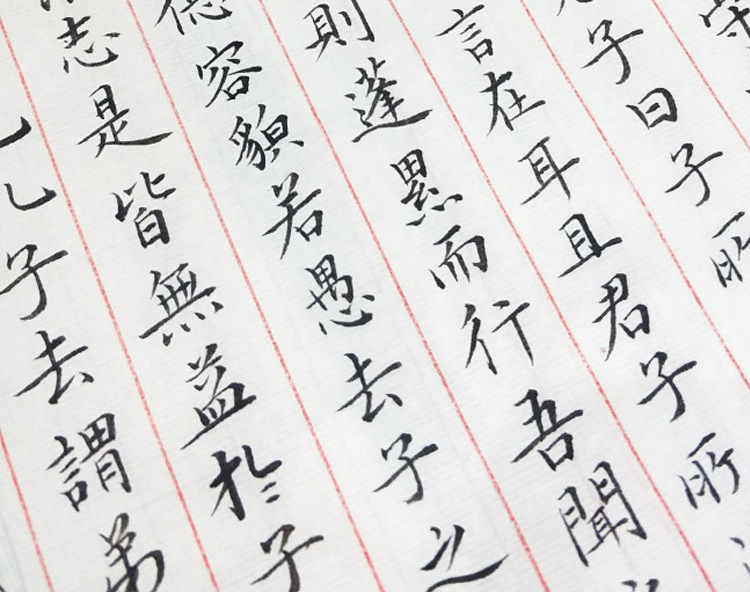 子曰子所
言在耳且君子所
則蓬累而行吾聞
德容貌若愚去子之
志是皆無益於子
子去謂弟